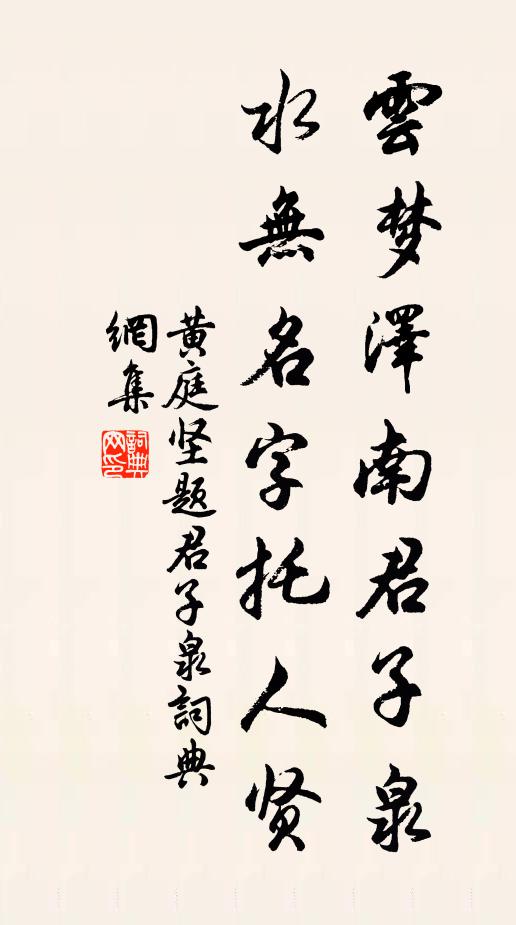 雲梦澤南君子泉
水無名字托人贤
黄庭坚题君子泉詞典
網集
詞典网印